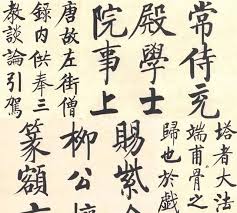 常侍充
殿學士
院事上
唐故左街僧
録内供奉三
教談論引駕
塔者大法
端甫骨之
歸也於戲
賜紫
柳公
篆額